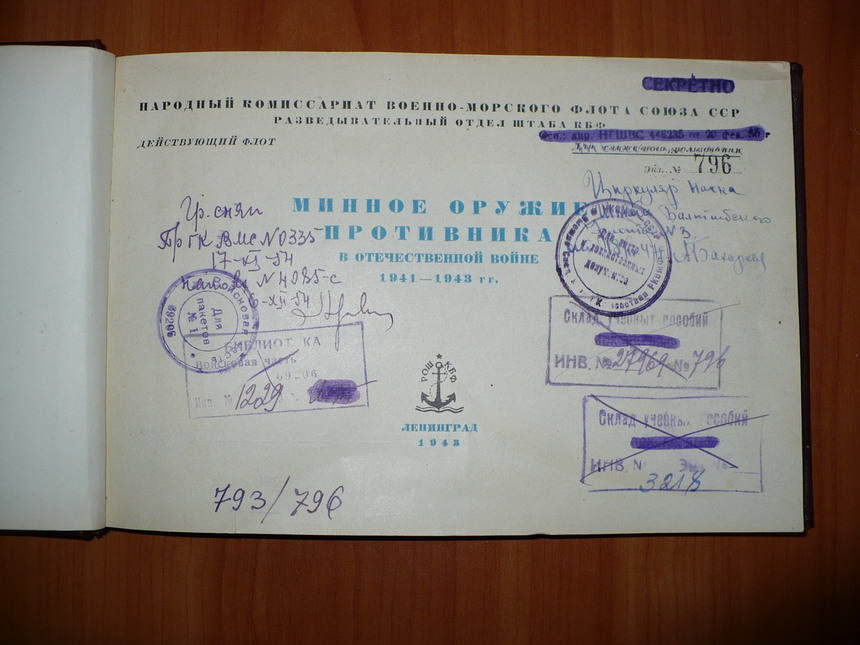 СЕКРЕТНО
НАРОДНЫЙ КОМИССАРИАТ ВОЕННО-МОРСКОГО ФЛОТА СОЮЗА ССР
РАЗВЕДЫВАТЕЛЬНЫЙ ОТДЕЛ ШТАБА КБФ
ДЕЙСТВУЮЩИЙ ФЛОТ
Экз. № 796
МИННОЕ ОРУЖИЕ
ПРОТИВНИКА
В ОТЕЧЕСТВЕННОЙ ВОЙНЕ
1941—1943 гг.
Гр. снят
Пр ГК ВМС № 0335
17-XI-54
№ 4085-с
6-XII-54
Циркуляр
Балтийского
№ 3
Войсковая часть
69206
Для
пакетов
№ 1
БИБЛИОТЕКА
Войсковая часть
69206
Инв. № 1229
Склад учебных пособий
ИНВ. № 27969 № 796
Склад учебных пособий
ИНВ. № Экз. №
3218
РОШ КБФ
ЛЕНИНГРАД
1943
793/796